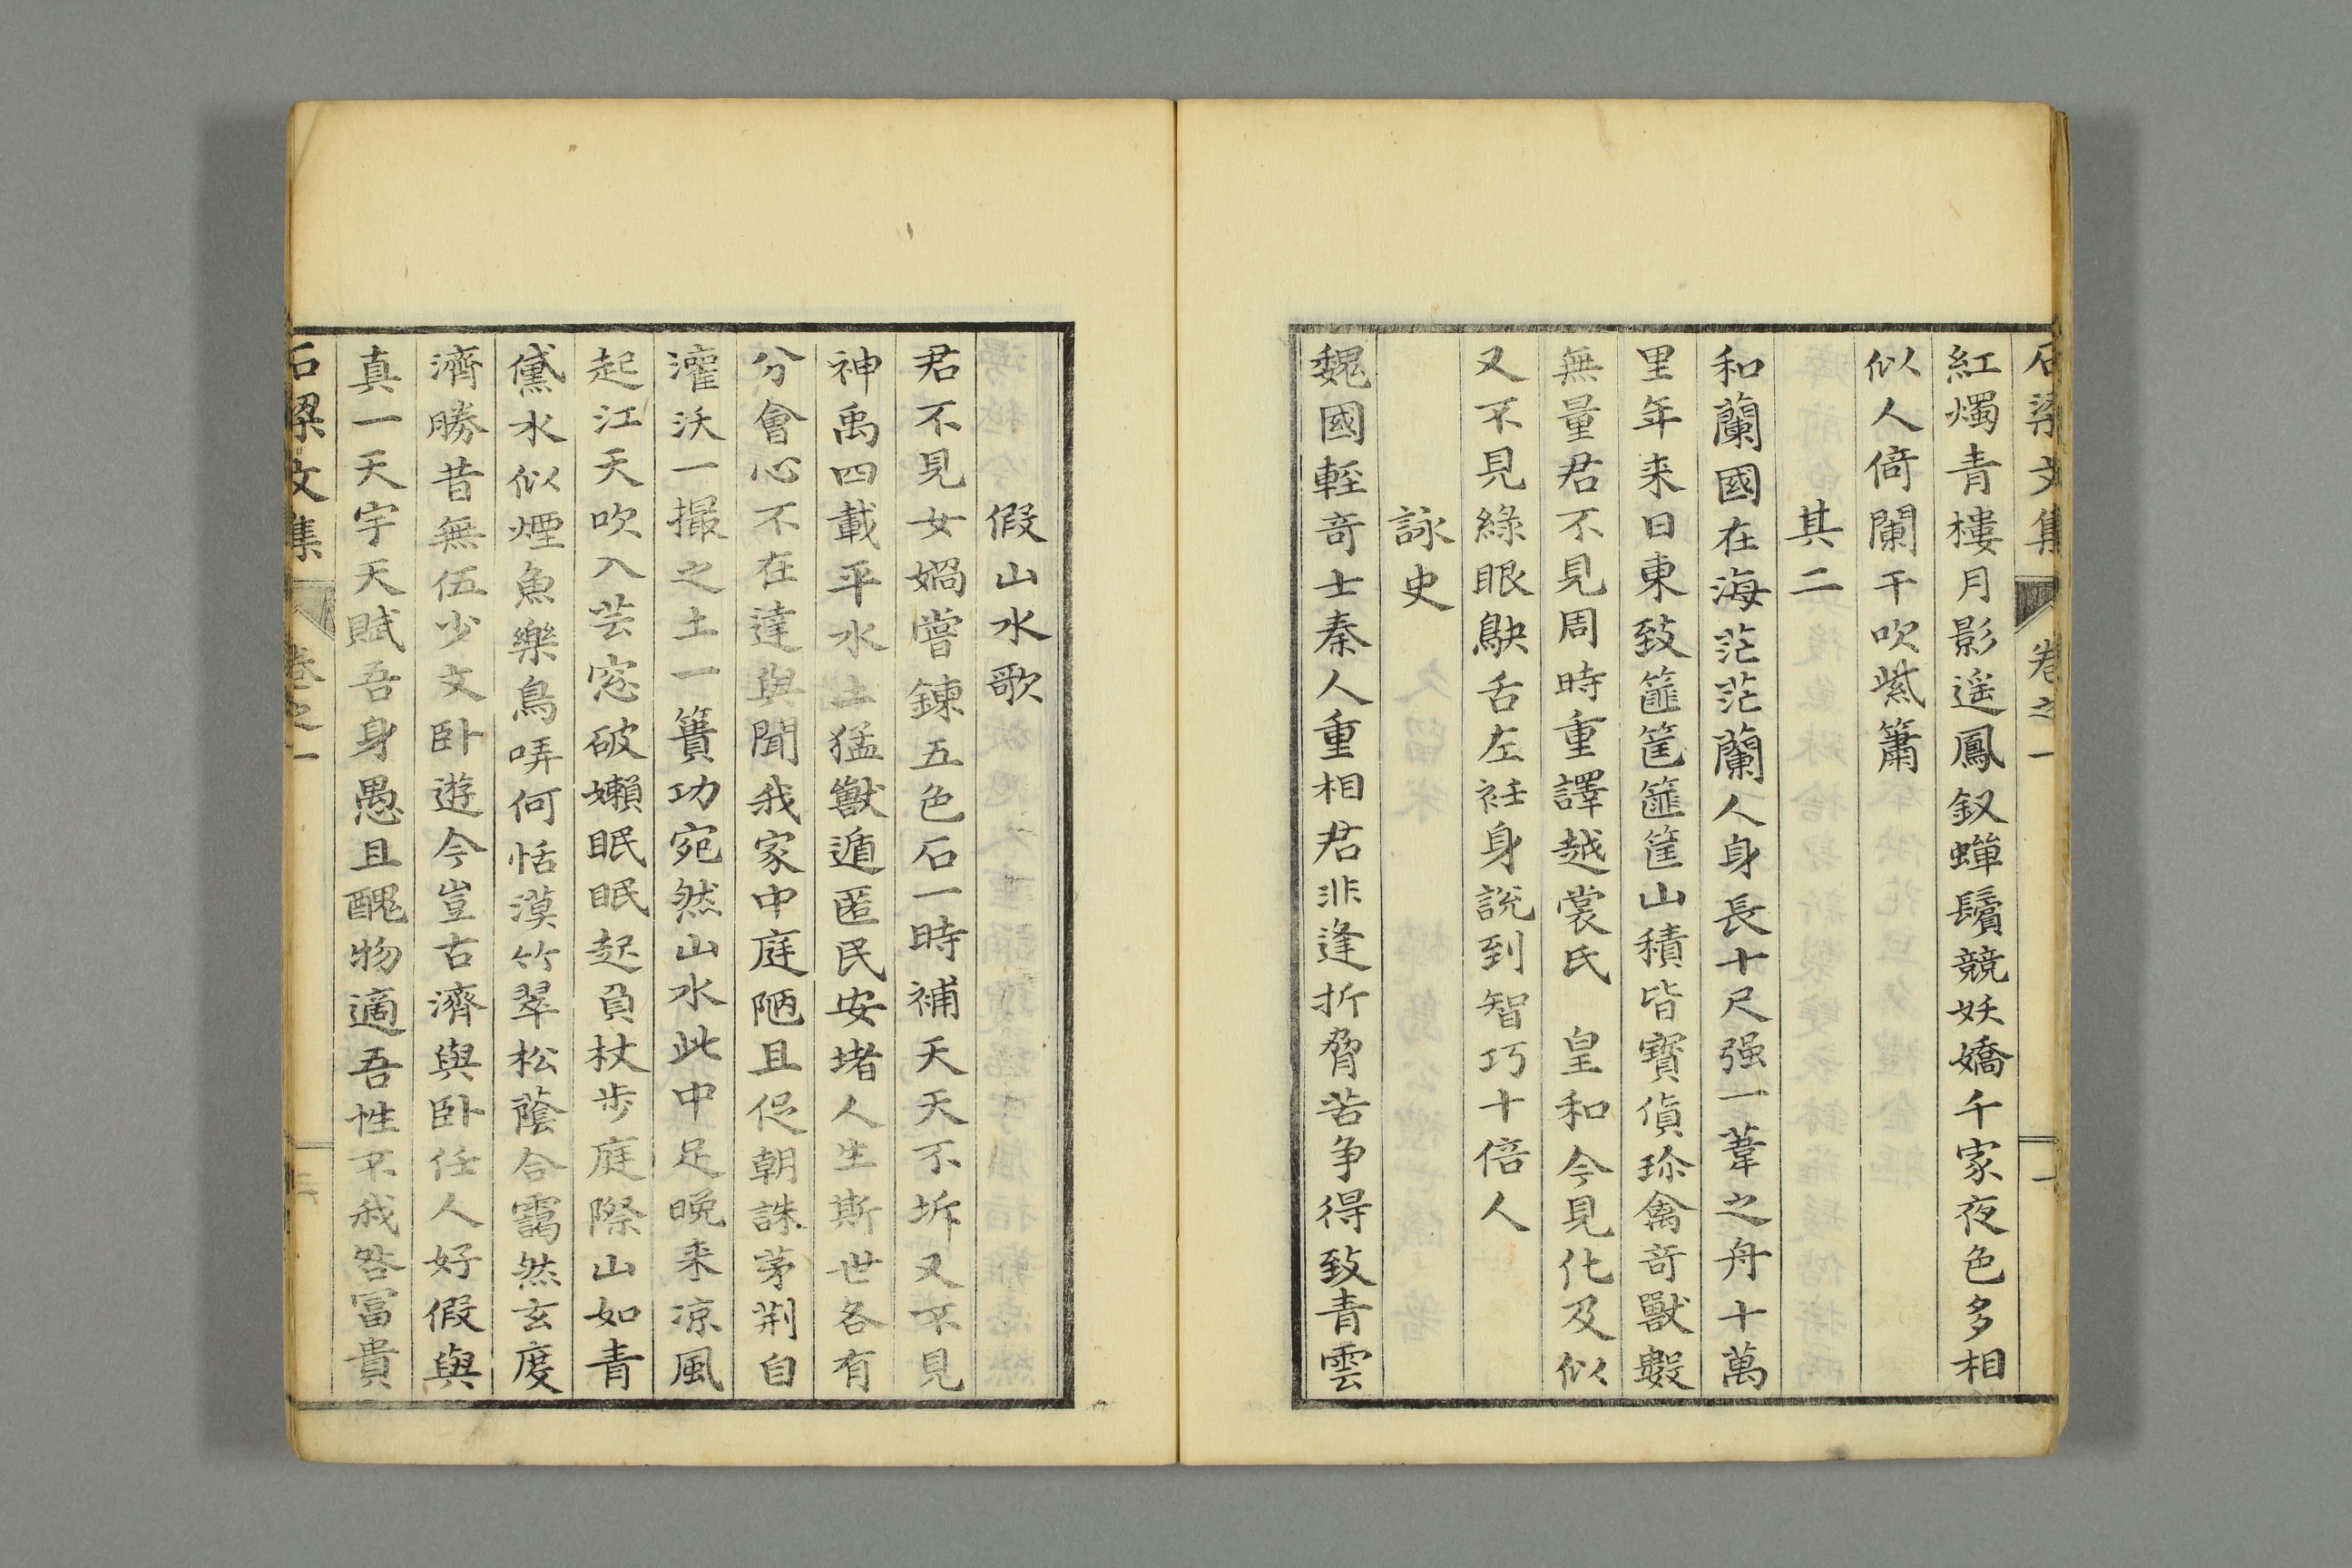 石梁文集 卷之一
紅燭青樓月影遥鳳釵蟬鬢競妖嬌千家夜色多相
似人倚闌干吹紫簫
其二
和蘭國在海茫茫蘭人身長十尺强一葦之舟十萬
里年来日東致篚筐篚筐山積皆寳貨珍禽竒獸數
無量君不見周時重譯越裳氏 皇和今見化及似
又不見綠眼鴃舌左衽身說到智巧十倍人
詠史
魏國輕竒士秦人重相君非逢折脅苦争得致青雲
假山水歌
君不見女媧嘗鍊五色石一時補天天不坼又不見
神禹四載平水土猛獸遁匿民安堵人生斯世各有
分會心不在達與聞我家中庭陋且促朝誅茅荆自
灌沃一撮之土一簣功宛然山水此中足晚来凉風
起江天吹入芸窓破嬾眠眠起負杖步庭際山如青
黛水似煙魚樂鳥哢何恬漠竹翠松蔭合靄然玄度
濟勝昔無伍少文卧遊今豈古濟與卧任人好假與
真一天宇天賦吾身愚且醜物適吾性不我咎冨貴
石梁文集 卷之一 三